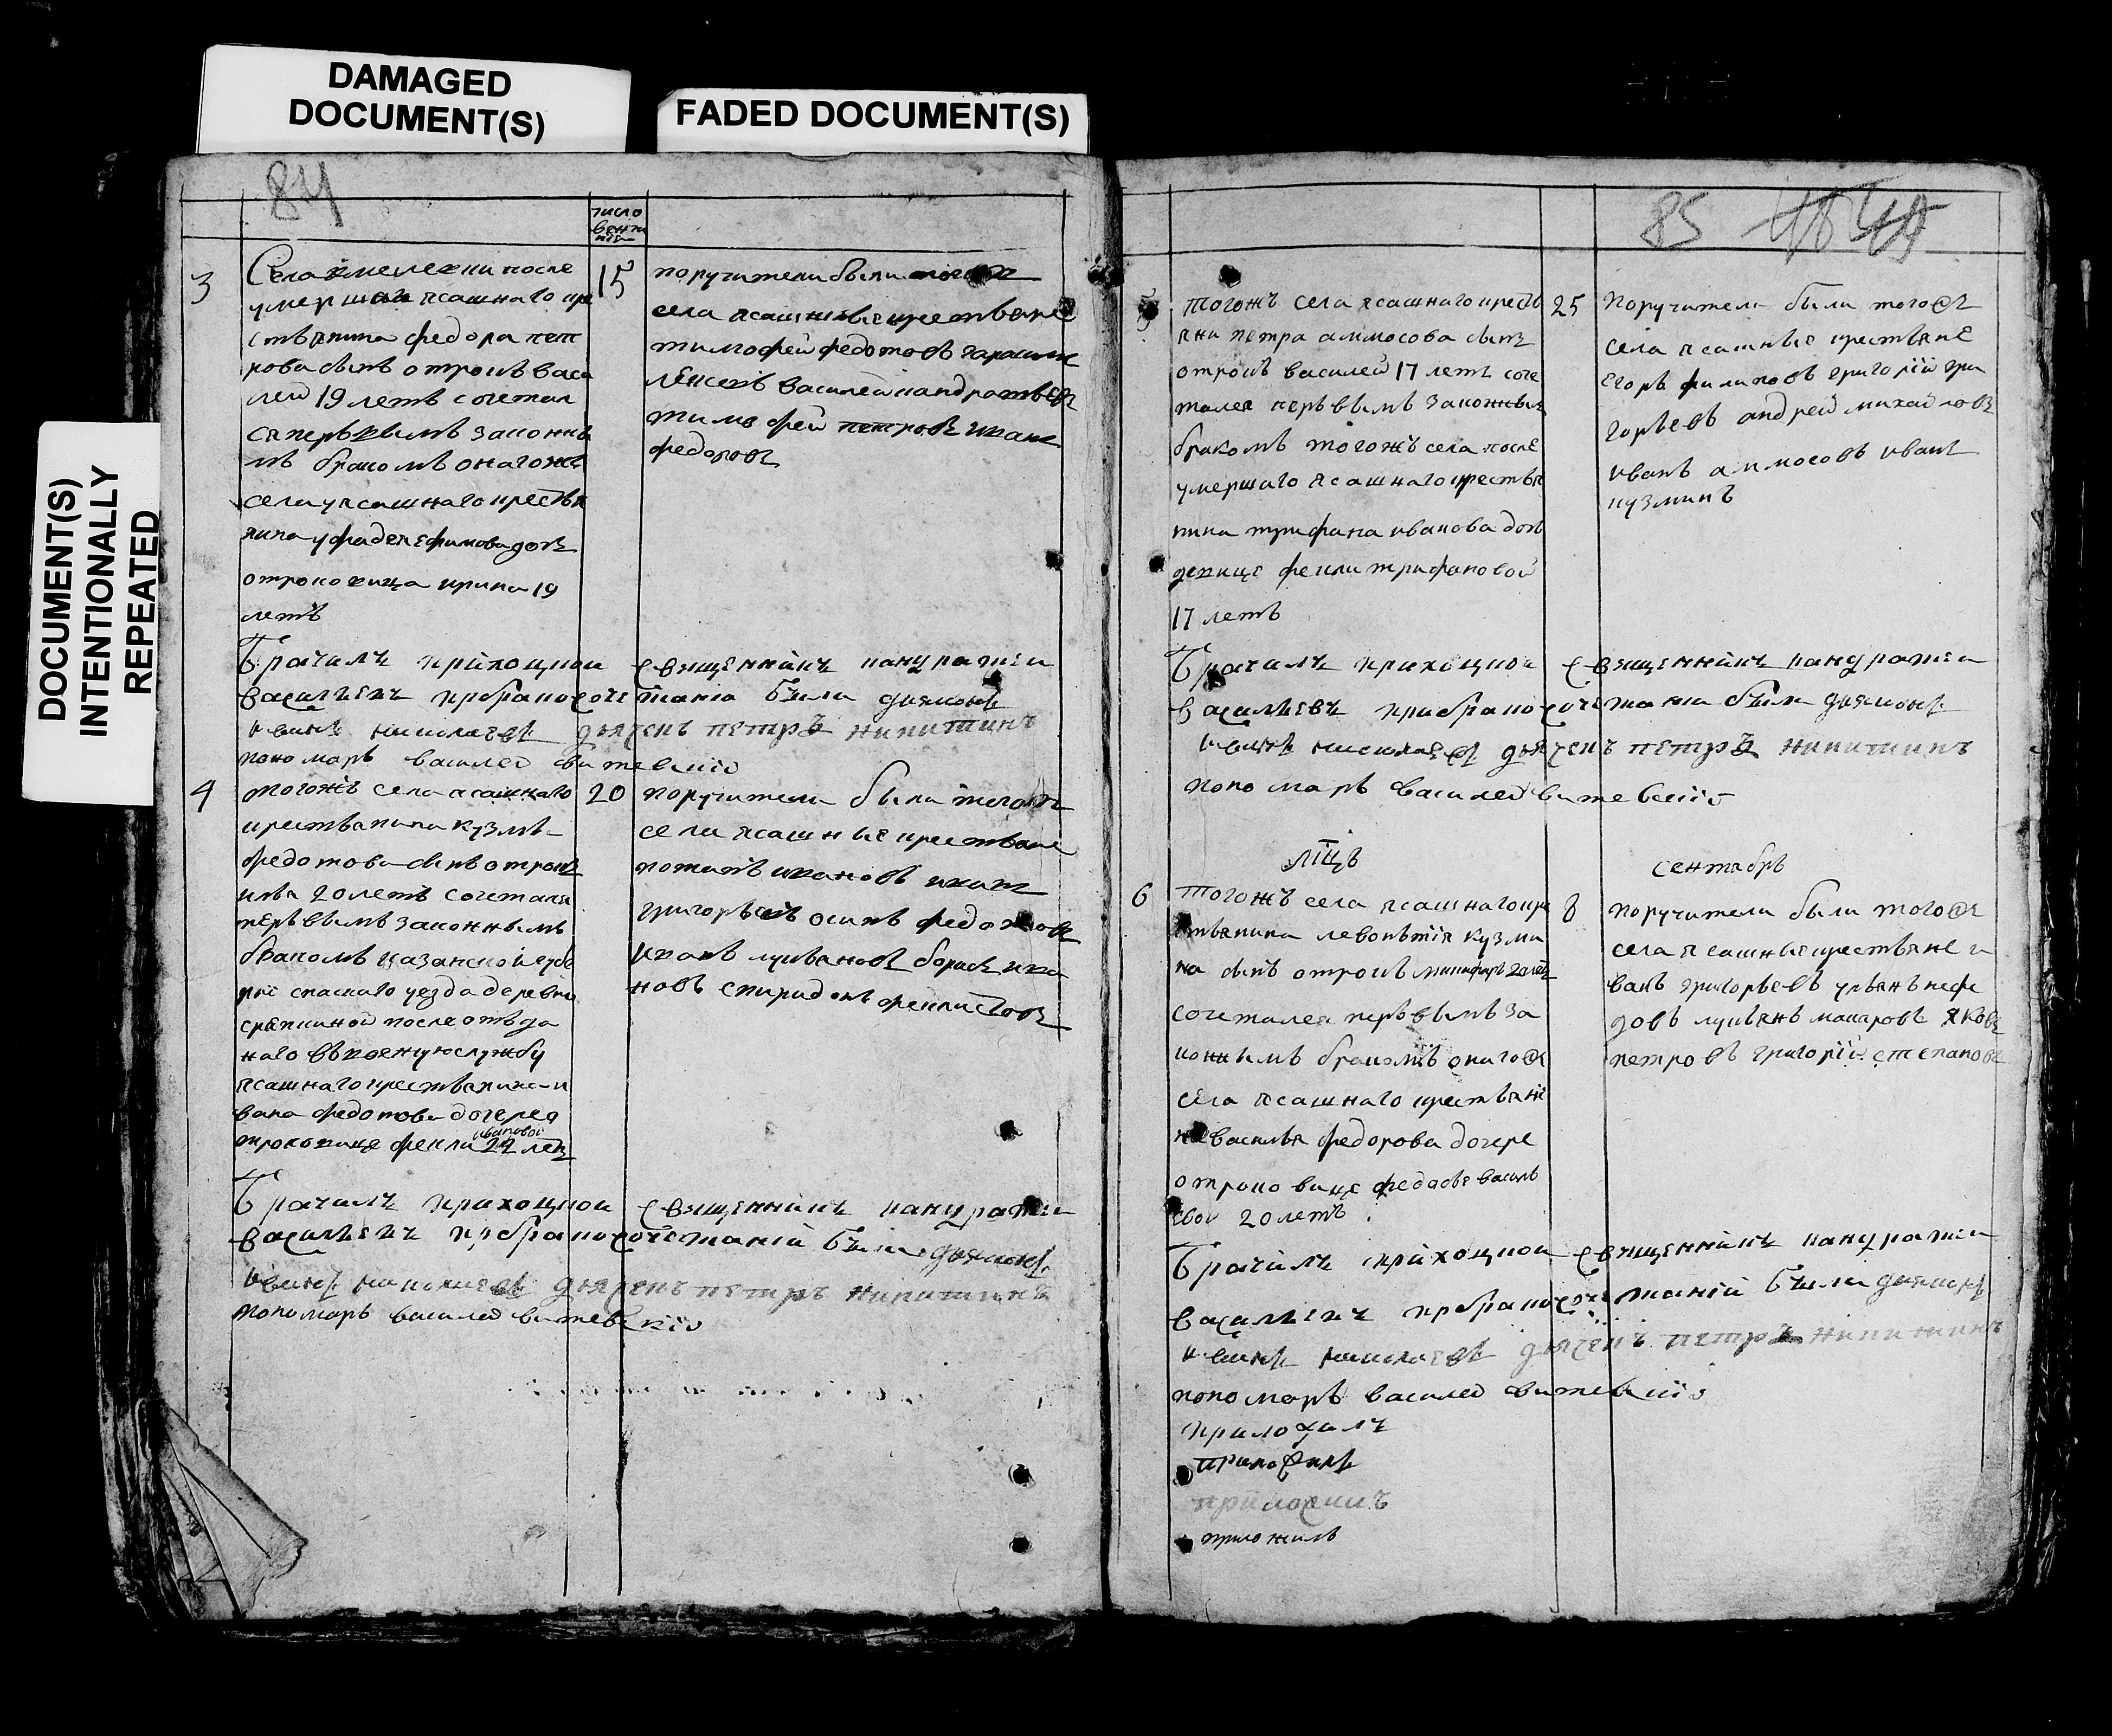 DAMAGED
DOCUMENT(S)
FADED DOCUMENT(S)
DOCUMENT(S)
INTENTIONALLY
REPEATED
84
число
венча
ния
3
Села хмелевки после
умершаго ясашнаго кре
стьянина федора пет
рова сынъ отрокъ васи
лей 19 летъ сочетал
ся первымъ законны
мъ бракомъ онагожъ
села у ясашнаго крестья
нина у фадея ефимова дочь
отроковица ирина 19
летъ
15
поручители были тогожъ
села ясашные крестьяне
тимофей федотовъ
василей кандратьевъ
тимофей петровъ иванъ
федоровъ
Брачилъ приходцкои священникъ кандратеи
васильевъ при бракосочетании были дияконъ
иванъ николаевъ дьячекъ петръ никитинъ
пономарь василей витевский
4
тогожъ села ясашнаго
крестьянина кузмы
федотова сынъ отрокъ
илья 20 летъ сочетался
первымъ законнымъ
бракомъ казанской губе
рнии спаскаго уезда деревни
после отъда
наго въ военную службу
ясашнаго крестьянина и
вана федотова дочерео
ивановой
троковице фекли 22 летъ
20
поручители были тогожъ
села ясашные крестьяне
потапъ ивановъ иванъ
григорьевъ осипъ федотовъ
иванъ лукьяновъ борисъ ива
новъ спиридонъ феклистовъ
Брачилъ приходцкои священникъ кандратеи
васильевъ при бракосочетании были дияконъ
иванъ николаевъ дьячекъ петръ никитинъ
пономарь василей витевский
85
5
тогожъ села ясашнаго кресть
яни петра аммосова сынъ
отрокъ василей 17 летъ соче
тался первымъ законнымъ
бракомъ тогожъ села после
умершаго ясашнаго крестья
нина трифана иванова дочь
девице фекли трифановой
17 летъ
25
Поручители были тогожъ
села ясашные крестьяне
егоръ филиповъ григорий гри
горьевъ андрей михайловъ
иванъ аммосовъ иванъ
кузминъ
Брачилъ приходцкои священникъ кандратеи
васильевъ при бракосочетании были дияконъ
иванъ николаевъ дьячекъ петръ никитинъ
пономарь василей витевский
мцъ сентябрь
6
тогожъ села ясашнаго кре
стьянина левоньтия кузми
на сынъ отрокъ никифоръ 20 летъ
сочетался первымъ за
коннымъ бракомъ онагожъ
села ясашнаго крестьяни
на василья федорова дочере
отроковице федосье василь
евой 20 летъ
8
поручители были тогожъ
села ясашные крестьяне и
ванъ григорьевъ ульянъ нефе
довъ лукьянъ макаровъ яковъ
петровъ григорий степановъ
Брачилъ приходцкои священникъ кандратеи
васильевъ при бракосочетании были дияконъ
иванъ николаевъ дьячекъ петръ никитинъ
пономарь василей витевский
приложилъ
приложилъ
приложилъ
приложилъ